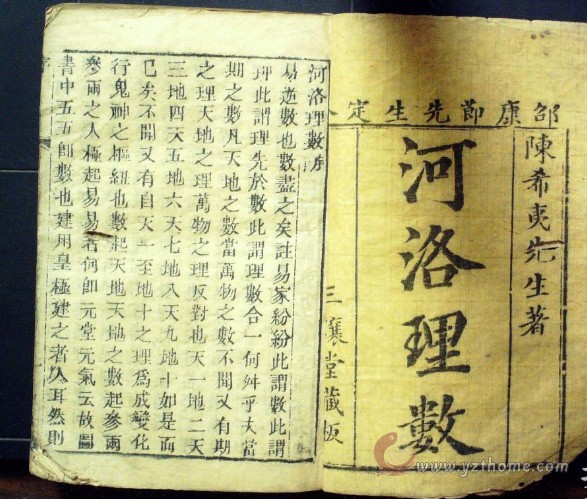 邵康節先生定
陳希夷先生著
河洛理數
三襄堂藏板
河洛理數序
易逆數也數盡之矣註易家紛紛此謂數此謂
理此謂理先於數此謂理數合一何舛乎夫當
期之數凡天地之數當萬物之數不聞又有期
之理天地之理萬物之理反對也天一地二天
三地四天五地六天七地八天九地十如是而
已矣不聞又有自天一至地十之理爲成變化
行鬼神之樞紐也數起天地天地之數起參兩
參兩之人極起易易者何即元堂元氣云故圖
書中五五即數也建用皇極建之者人耳然則
www.yzthome.com